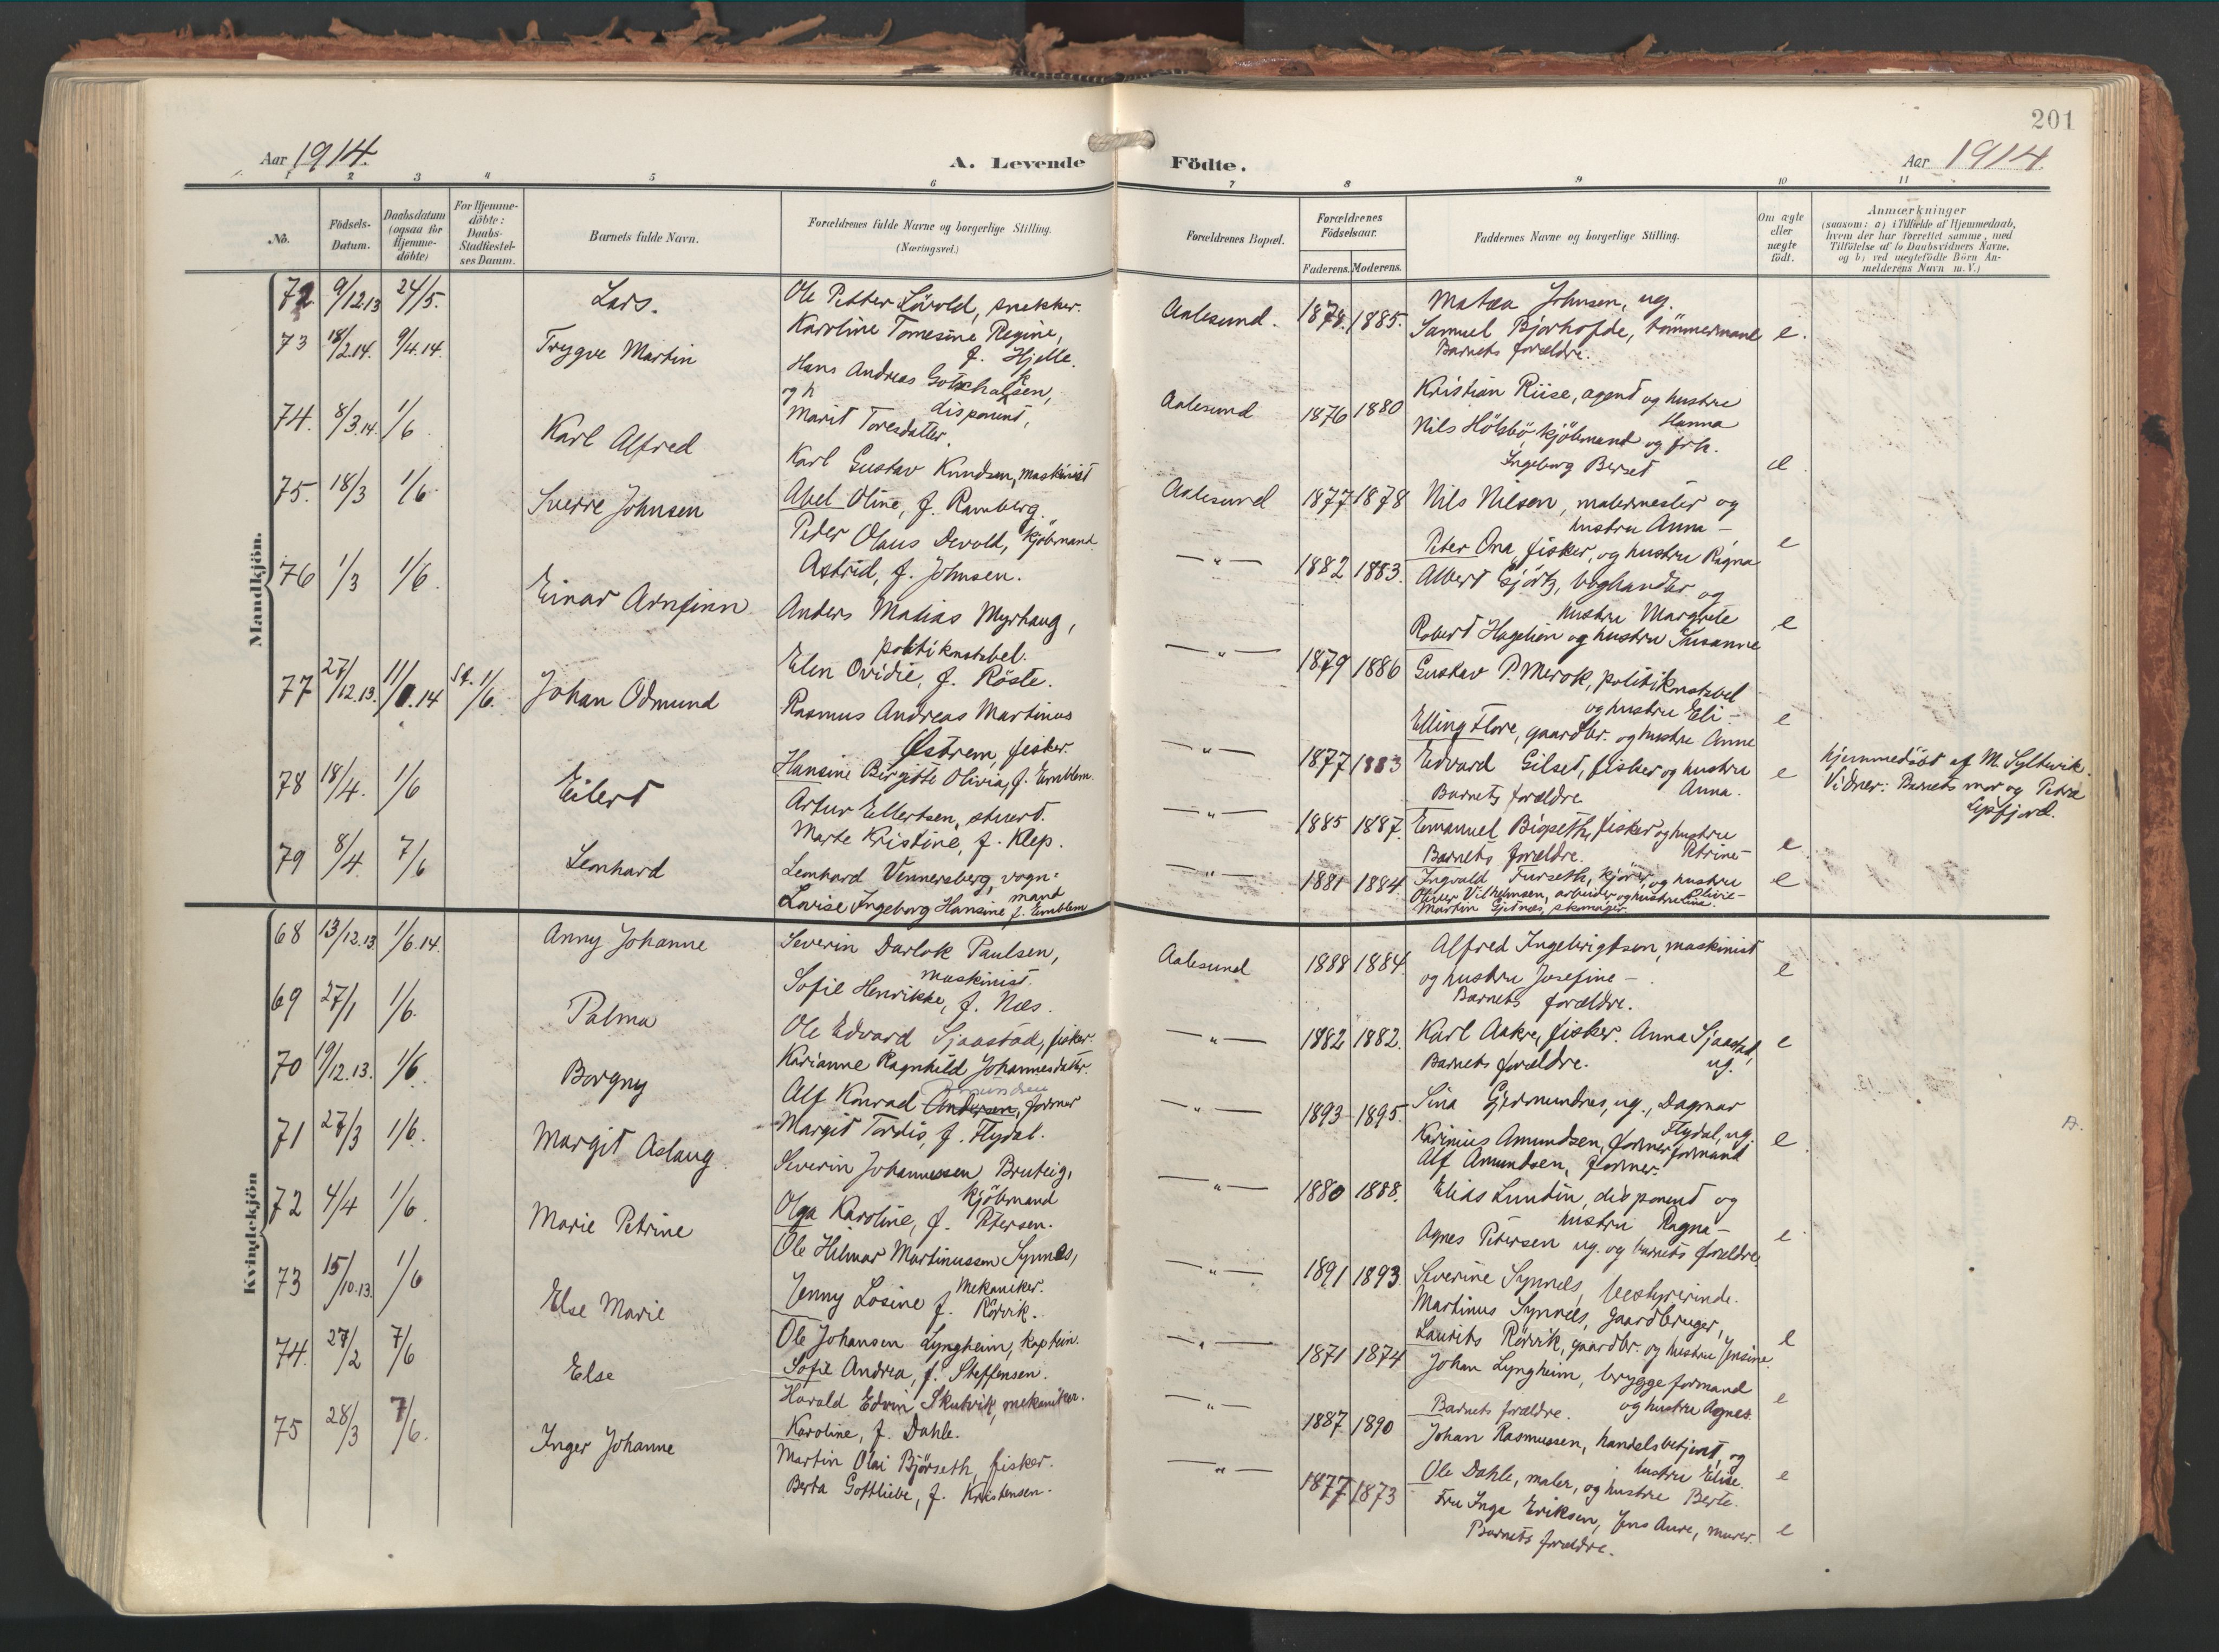 201
Aar 1914.
A. Levende
Födte.
Aar 1914
1 2 3 4 5 6
7 8 9 10 11
No.
Födsels-
Datum.
Daabsdatum
(ogsaa for
Hjemme-
döbte)
For Hjemme-
döbte:
Daabs-
Stadfæstel-
ses Datum.
Barnets fulde Navn.
Forældrenes fulde Navne og borgerlige Stilling.
(Næringsvei.)
Forældrenes Bopæl.
Forældrenes
Födselsaar.
Faderens. Moderens.
Faddernes Navne og borgerlige Stilling.
Om ægte
eller
uægte
födt.
Anmærkninger
(saasom: a) i Tilfælde af Hjemmedaab,
hvem der har forrettet samme, med
Tilföielse af to Daabsvidners Navne,
og b) ved uægtefödte Börn An-
melderens Navn m. V.)
Mandkjön.
72 9/12.13 24/5. Lars.
Ole Petter Lövold, snekker.
Karoline Tomesine Regine,
f. Hjelle.
Aalesund. 1878. 1885.
Matea Johnsen, ug.
Samuel Bjørhofde, tömmermand
Barnets forældre.
e.
73 18/2.14. 9/4.14. Trygve Martin
Hans Andreas Gotschalksen,
og h disponent,
Marit Toresdatter.
Aalesund 1876 1880
Kristian Riise, agent og hustru
Hanna
Nils Hölsbö, kjöbmand og frk.
Ingeborg Berset
e.
74. 8/3.14. 1/6. Karl Alfred
Karl Gustav Knudsen, maskinist
Abel Oline, f. Ramberg.
Aalesund 1877 1878
Nils Nilsen, malermester og
hustru Anna –
Peter Ona, fisker, og hustru Ragna
e
75. 18/3 1/6. Sverre Johnsen
Peder Olaus Devold, kjöbmand.
Astrid, f. Johnsen.
— " — 1882 1883.
Albert Gjörtz, boghandler og
hustru Margrete
Robert Hagelien og hustru Susanne
e
76 1/3 1/6. Einar Arnfinn
Anders Matias Myrhaug,
politikonstabel.
Elen Ovidie, f. Röste.
— " — 1879 1886
Gustav P. Merok, politikonstabel
og hustru Eli –
Elling Flore, gaardbr. og hustru Anne
e
77 27/12.13. 11/1.14 St. 1/6. Johan Odmund
Rasmus Andreas Martinus
Østrem, fisker.
Hansine Birgitte Olivia, f. Emblem.
— " — 1877 1883
Edvard Gilset, fisker og hustru
Anna.
Barnets forældre.
e
hjemmedöbt af M. Syltevik.
Vidner: Barnets mor og Petra
Lepfjord.
78 18/4. 1/6 Eilert
Artur Ellertsen, stuert.
Marte Kristine, f. Klep.
— " — 1885 1887.
Emanuel Bigseth, fisker og hustru
Petrine –
Barnets forældre.
e.
79 8/4. 7/6 Leonhard
Leonhard Vennersberg, vogn-
mand
Lovise Ingeborg Hansine f. Emblem
— " — 1881 1884
Ingvald Furseth, kjörer, og hustru
Olivie –
Oliver Vilhelmsen, arbeider og hustru Line.
Martin Gjetnæs, skomager
e
Kvindekjön
68 13/12.13 1/6.14. Anny Johanne
Severin Darlok Paulsen,
maskinist.
Sofie Henrikke, f. Næs.
Aalesund 1888 1884.
Alfred Ingebrigtsen, maskinist
og hustru Josefine –
Barnets forældre.
e
69 27/1 1/6. Palma
Ole Edvard Sjaastad, fisker.
Karianne Ragnhild Johannesdatter.
— " — 1882 1882.
Karl Aakre, fisker. Anna Sjaastad,
ug.
Barnets forældre.
e
70 19/12.13. 1/6. Borgny
Amundsen
Alf Konrad Andersen, former
Margit Tordis, f. Flydal.
— " — 1893 1895
Sina Gjermundnes, ug., Dagmar
Flydal, ug.
Karinius Amundsen, formerformand
Alf Amundsen, former.
e.
71 27/3 1/6. Margit Aslaug
Severin Johannessen Bruteig,
kjöbmand
Olga Karoline, f. Petersen.
— " — 1880 1888.
Elias Lundin, disponent og
hustru Ragna –
Agnes Petersen ug. og barnets forældre
e
72 4/4 1/6. Marie Petrine
Ole Hilmar Martinussen Synnes,
mekaniker.
Jenny Losine f. Rörvik.
— " — 1891 1893.
Severine Synnes, bestyrerinde.
Martinus Synnes, gaardbruger,
Laurits Rörvik, gaardbr. og hustru Jensine.
e
73 15/10.13. 1/6 Else Marie
Ole Johansen Lyngheim, kaptein.
Sofie Andrea, f. Steffensen.
— " — 1871 1874
Johan Lyngheim, bryggeformand
og hustru Agnes.
Barnets forældre.
e
74. 27/2 7/6 Else
Harald Edvin Skutvik, mekaniker.
Karoline, f. Dahle.
— " — 1887 1890
Johan Rasmussen, handelsbetjent, og
hustru Elise.
Ole Dahle, maler, og hustru Berte.
e
75 28/3 7/6. Inger Johanne
Martin Olai Björseth, fisker.
Berta Gottliebe, f. Kristensen.
— " — 1877 1873
Fru Inga Eriksen, Jens Aure, murer.
Barnets forældre.
e